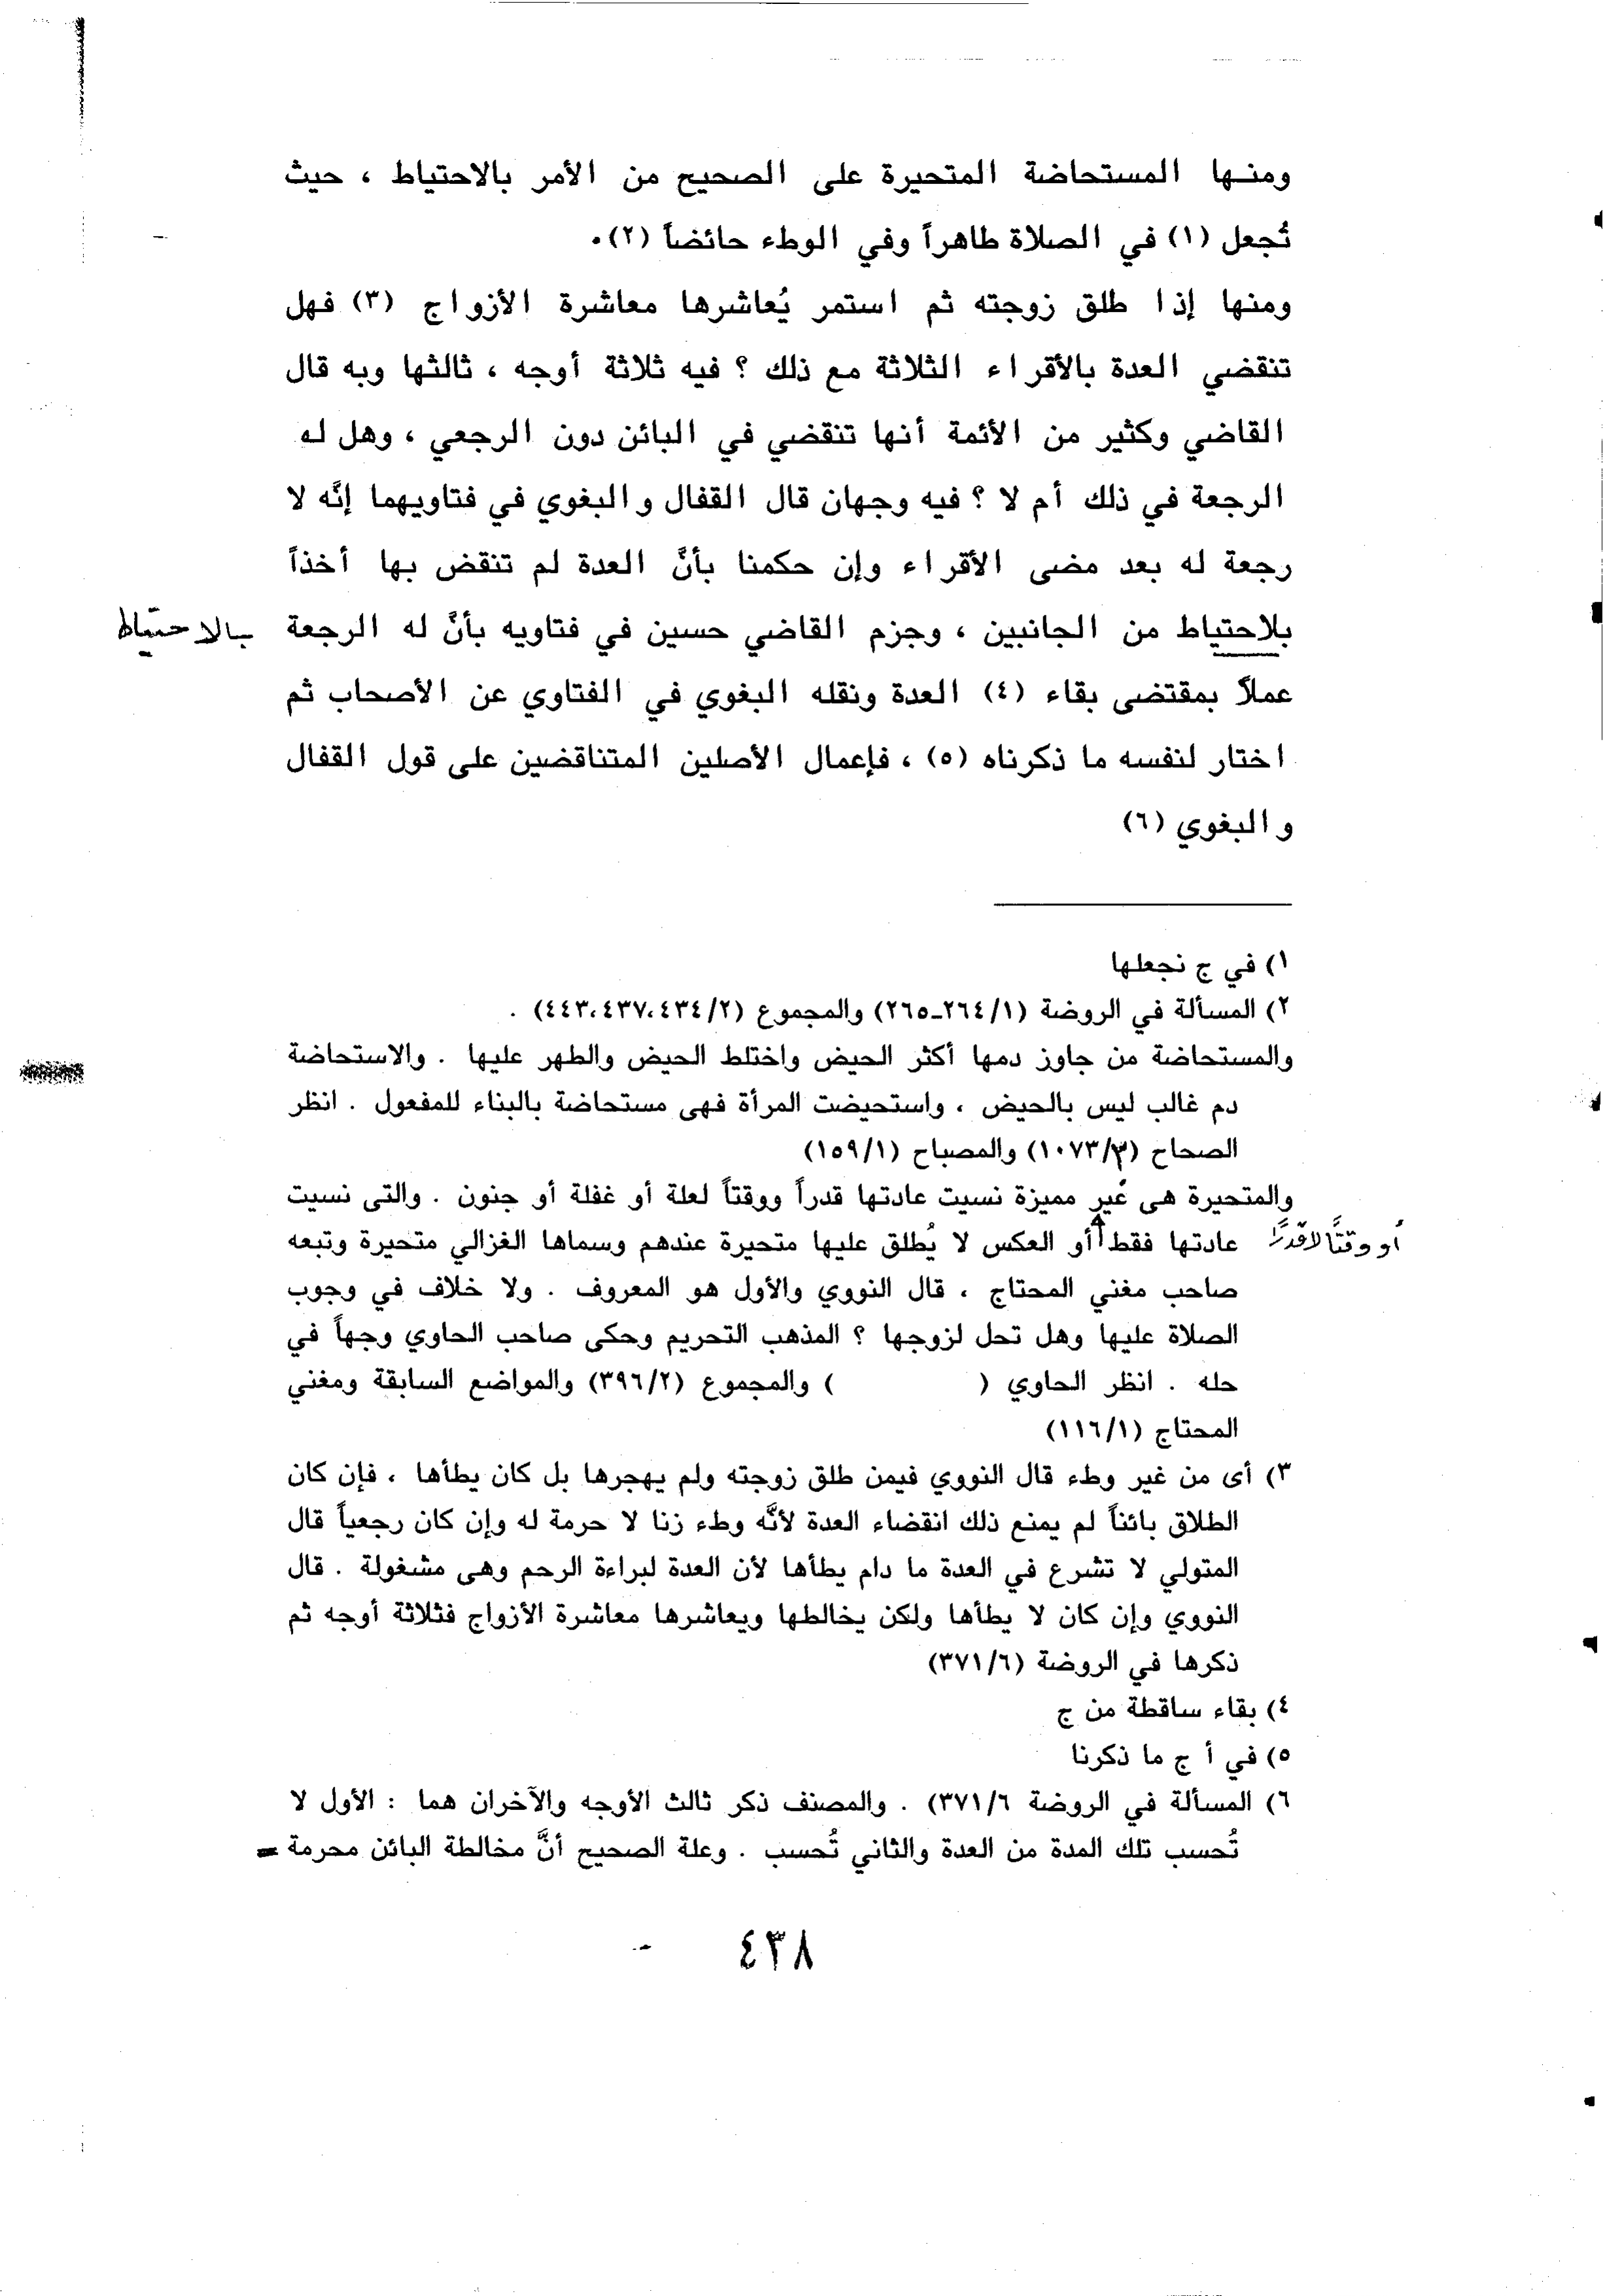 ومنها المستحاضة المتحيرة على الصحيح من الأمر بالاحتياط ، حيث
تُجعل (١) في الصلاة طاهراً وفي الوطء حائضاً (٢).
ومنها إذا طلق زوجته ثم استمر يُعاشرها معاشرة الأزواج (٣) فهل
تنقضي العدة بالأقراء الثلاثة مع ذلك ؟ فيه ثلاثة أوجه ، ثالثها وبه قال
القاضي وكثير من الأئمة أنها تنقضي في البائن دون الرجعي ، وهل له
الرجعة في ذلك أم لا ؟ فيه وجهان قال القفال والبغوي في فتاويهما إنَّه لا
رجعة له بعد مضى الأقراء وإن حكمنا بأنَّ العدة لم تنقض بها أخذاً
بلاحتياط من الجانبين ، وجزم القاضي حسين في فتاويه بأنَّ له الرجعة بالاحتياط
عملاً بمقتضى بقاء (٤) العدة ونقله البغوي في الفتاوي عن الأصحاب ثم
اختار لنفسه ما ذكرناه (٥) ، فإعمال الأصلين المتناقضين على قول القفال
والبغوي (٦)
١) في ج نجعلها
٢) المسألة في الروضة (٢٦٤/١-٢٦٥) والمجموع (٤٣٤/٢،٤٣٧،٤٤٣) .
والمستحاضة من جاوز دمها أكثر الحيض واختلط الحيض والطهر عليها . والاستحاضة
دم غالب ليس بالحيض ، واستحيضت المرأة فهى مستحاضة بالبناء للمفعول . انظر
الصحاح (١٠٧٣/٣) والمصباح (١٥٩/١)
والمتحيرة هى غير مميزة نسيت عادتها قدراً ووقتاً لعلة أو غفلة أو جنون . والتى نسيت
عادتها فقط أو العكس لا يُطلق عليها متحيرة عندهم وسماها الغزالي متحيرة وتبعه
أو وقتًا لا قدرًا
صاحب مغني المحتاج ، قال النووي والأول هو المعروف . ولا خلاف في وجوب
الصلاة عليها وهل تحل لزوجها ؟ المذهب التحريم وحكى صاحب الحاوي وجهاً في
حله . انظر الحاوي ( ) والمجموع (٣٩٦/٢) والمواضع السابقة ومغني
المحتاج (١١٦/١)
٣) أى من غير وطء قال النووي فيمن طلق زوجته ولم يهجرها بل كان يطأها ، فإن كان
الطلاق بائناً لم يمنع ذلك انقضاء العدة لأنَّه وطء زنا لا حرمة له وإن كان رجعياً قال
المتولي لا تشرع في العدة ما دام يطأها لأن العدة لبراءة الرحم وهى مشغولة . قال
النووي وإن كان لا يطأها ولكن يخالطها ويعاشرها معاشرة الأزواج فثلاثة أوجه ثم
ذكرها في الروضة (٣٧١/٦)
٤) بقاء ساقطة من ج
٥) في أ ج ما ذكرنا
٦) المسألة في الروضة ٣٧١/٦) . والمصنف ذكر ثالث الأوجه والآخران هما : الأول لا
تُحسب تلك المدة من العدة والثاني تُحسب . وعلة الصحيح أنَّ مخالطة البائن محرمة =
٤٣٨